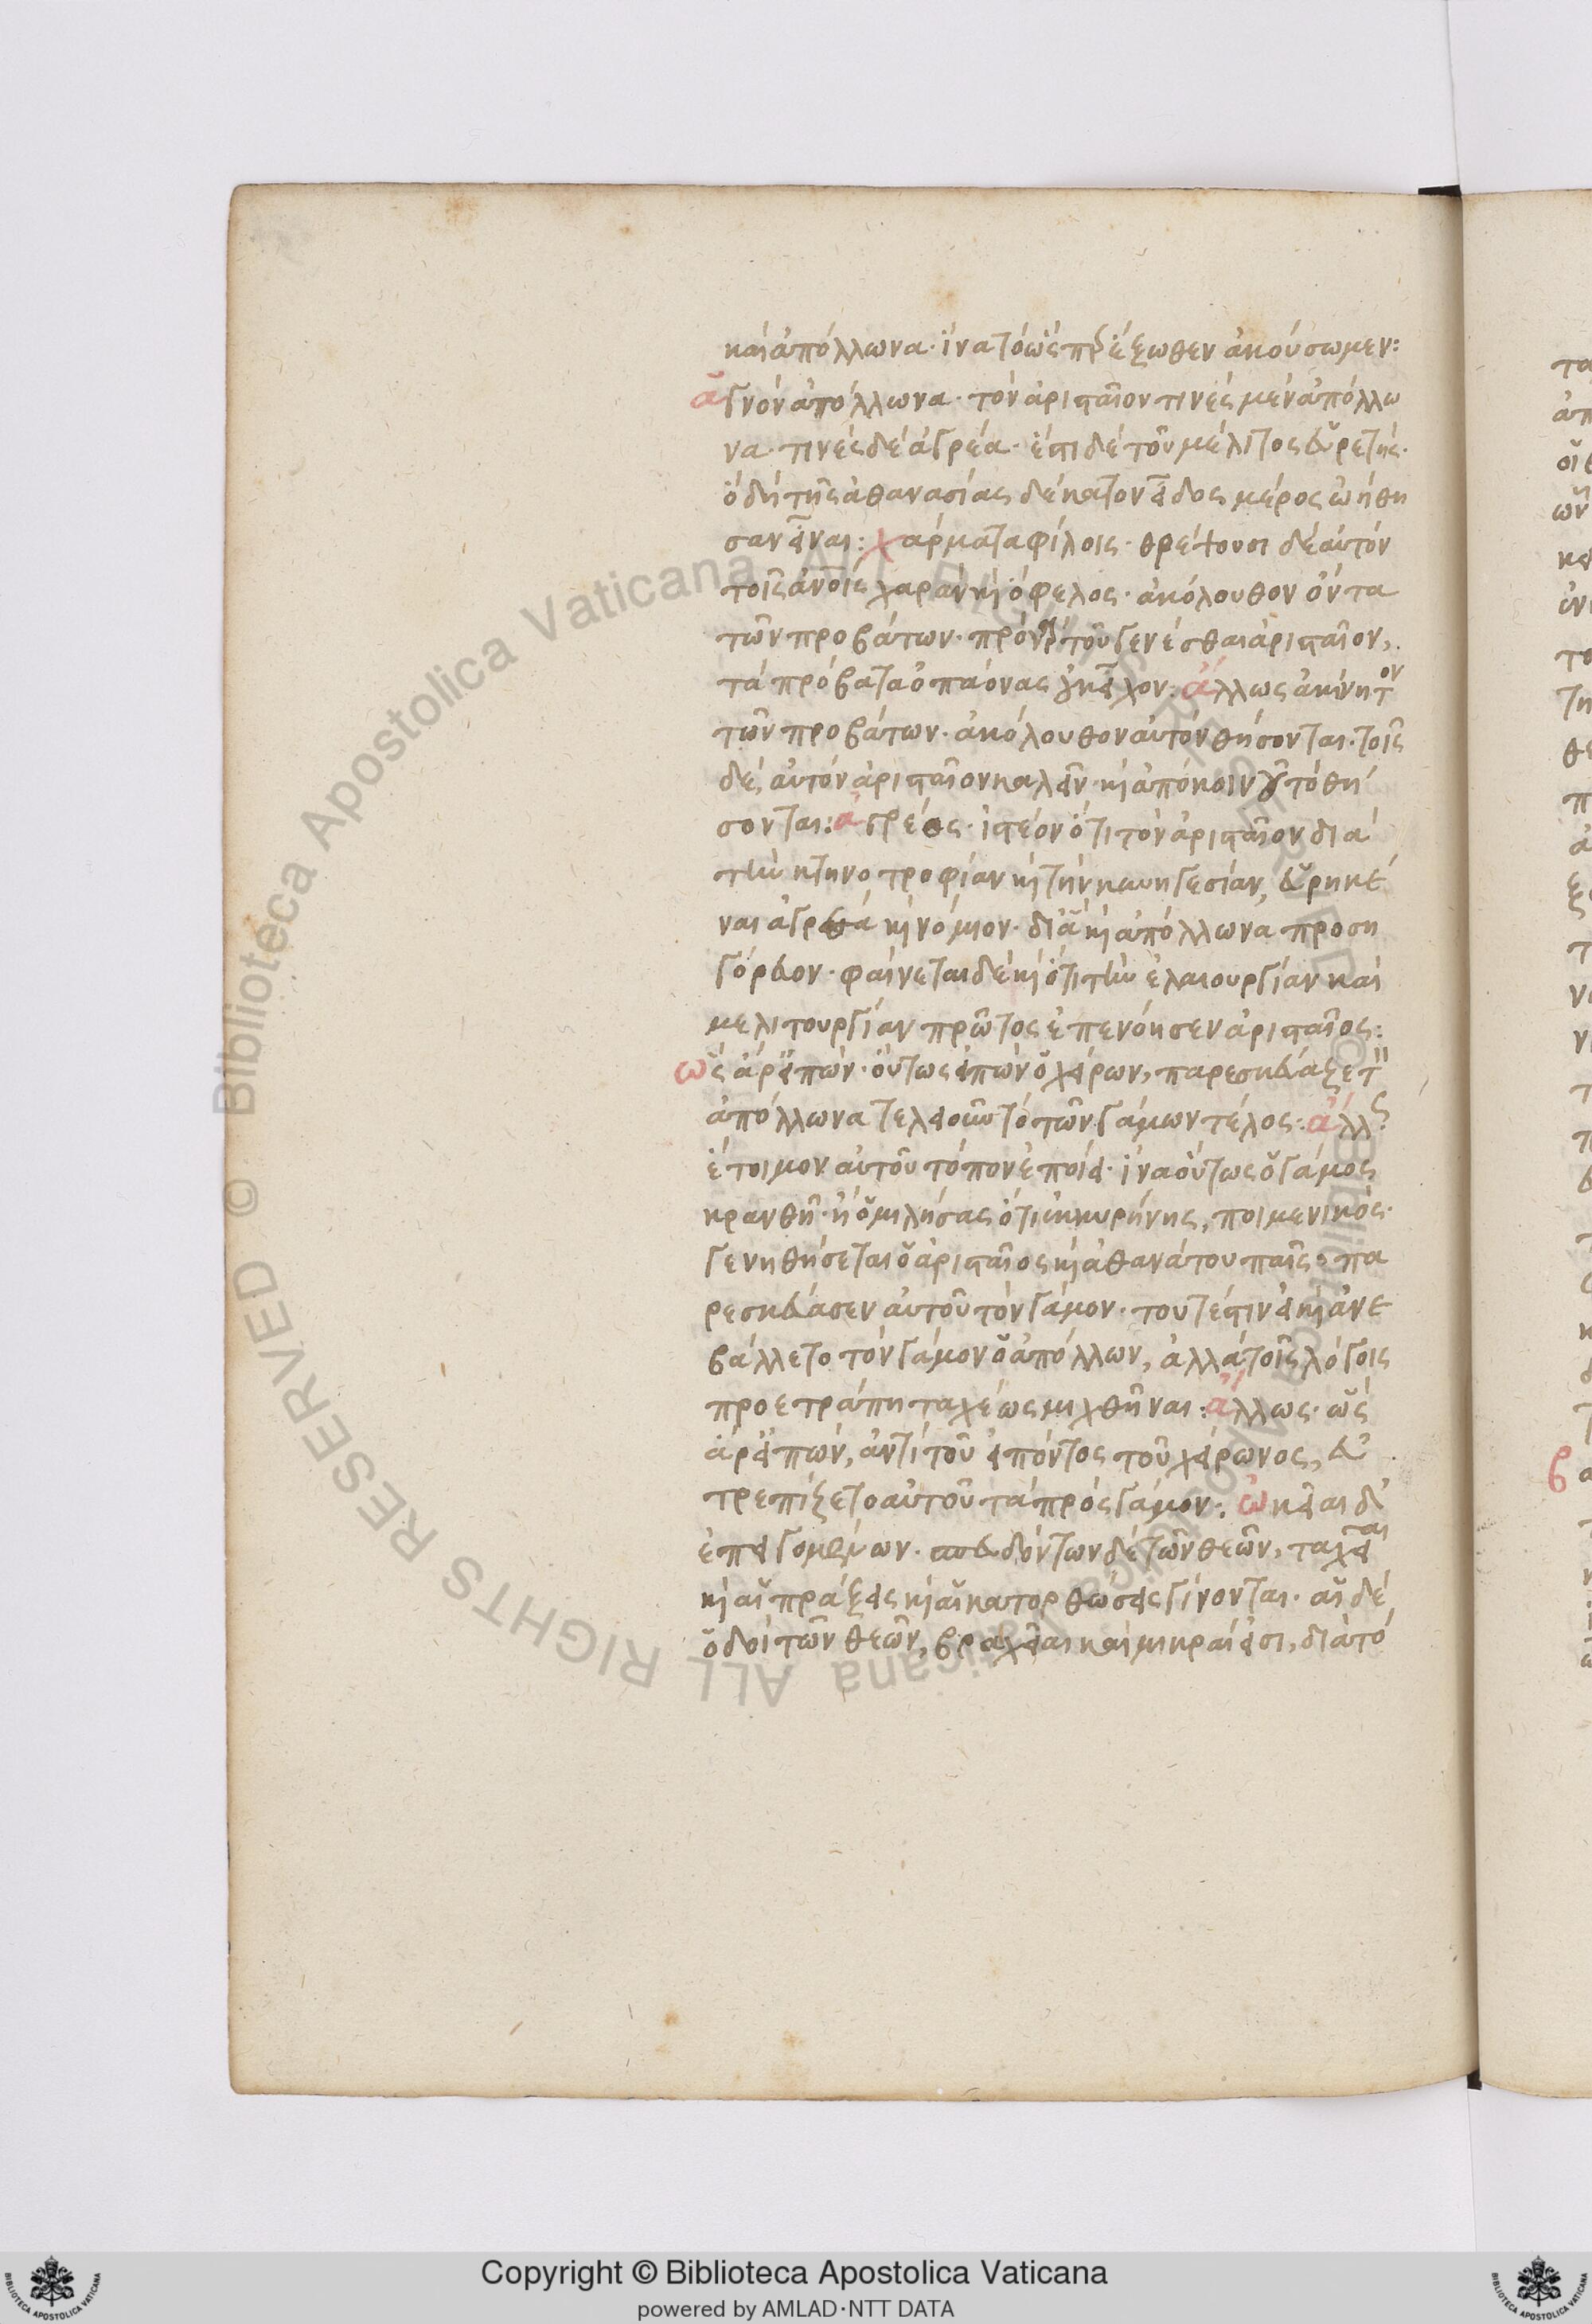 καὶ ἀπόλλωνα· ἵνα τὸ ὡς πρὸς ἔξωθεν ἀκούσωμεν:
ἁγνὸν ἀπόλλωνα· τὸν ἀρισταῖον τινὲς μὲν ἀπόλλω
να· τινὲς δὲ ἀγρέα· ἐπὶ δὲ τοῦ μέλιτος εὑρετής·
ὃ δὴ τῆς ἀθανασίας δέκατον εἶδος μέρος ὠήθη
σαν εἶναι: χάρματα φίλοις· θρέψουσι δὲ αὐτὸν
τοῖς ἀνοις χαρὰν κὶ ὄφελος· ἀκόλουθον ὄντα
τῶν προβάτων· πρὸ γὰρ τοῦ γενέσθαι ἀρισταῖον,
τὰ πρόβατα ὀπάονας οὐκ εἶχον: ἄλλως ἀκίνητον
τῶν προβάτων· ἀκόλουθον αὐτὸν θήσονται· τοῖς
δὲ αὐτὸν ἀρισταῖον καλεῖν· κὶ ἀπὸ κοινοῦ τὸ θή
σονται: ἀγρέος· ἰστέον ὅτι τὸν ἀρισταῖον διὰ
τὴν κτηνοτροφίαν κὶ τὴν κυνηγεσίαν, εὑρηκέ
ναι ἀγρέα κὶ νόμιον· διὰ κὶ ἀπόλλωνα προση
γόρευον· φαίνεται δὲ κὶ ὅτι τὴν ἐλαιουργίαν καὶ
μελιτουργίαν πρῶτος ἐπενόησεν ἀρισταῖος:
ὣς ἄρ εἰπὼν· οὕτως εἰπὼν ὁ χείρων, παρεσκεύαζε τ
ἀπόλλωνα τελειοῦν τὸ τῶν γάμων τέλος: ἄλλς
ἕτοιμον αὐτοῦ τόπον ἐποίει· ἵνα οὕτως ὁ γάμος
κρανθῇ· ἢ ὁμιλήσας ὅτι ἐκ κυρήνης, ποιμενικός·
γενηθήσεται ὁ ἀρισταῖος κὶ ἀθανάτου παῖς, πα
ρεσκεύασεν αὐτοῦ τὸν γάμον· τουτέστιν εἰ κὶ ἀνε
βάλλετο τὸν γάμον ὁ ἀπόλλων, ἀλλὰ τοῖς λόγοις
προετράπη ταχέως μιχθῆναι: ἄλλως· ὣς
ἄρ εἰπὼν, ἀντὶ τοῦ εἰπόντος τοῦ χείρωνος, εὐ
τρεπίζετο αὐτοῦ τὰ πρὸς γάμον: ὠκεῖαι δ'
ἐπειγομένων· σπευδόντων δὲ τῶν θεῶν, ταχεῖαι
κὶ αἱ πράξεις κὶ αἱ κατορθώσεις γίνονται· αἱ δὲ
ὁδοὶ τῶν θεῶν, βραχεῖαι καὶ μικραί εἰσι, διὰ τὸ
Copyright © Biblioteca Apostolica Vaticana
powered by AMLAD·NTT DATA